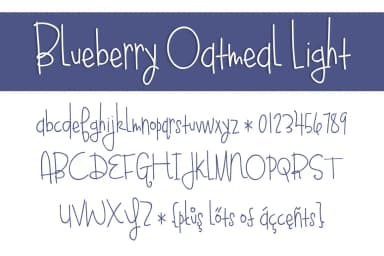 Blueberry Oatmeal Light
abcdefghijklmnopqrstuvwxyz * 0123456789
ABCDEFGHIJKLMNOPQRST
UVWXYZ * {płuş lőts of áççeñts}